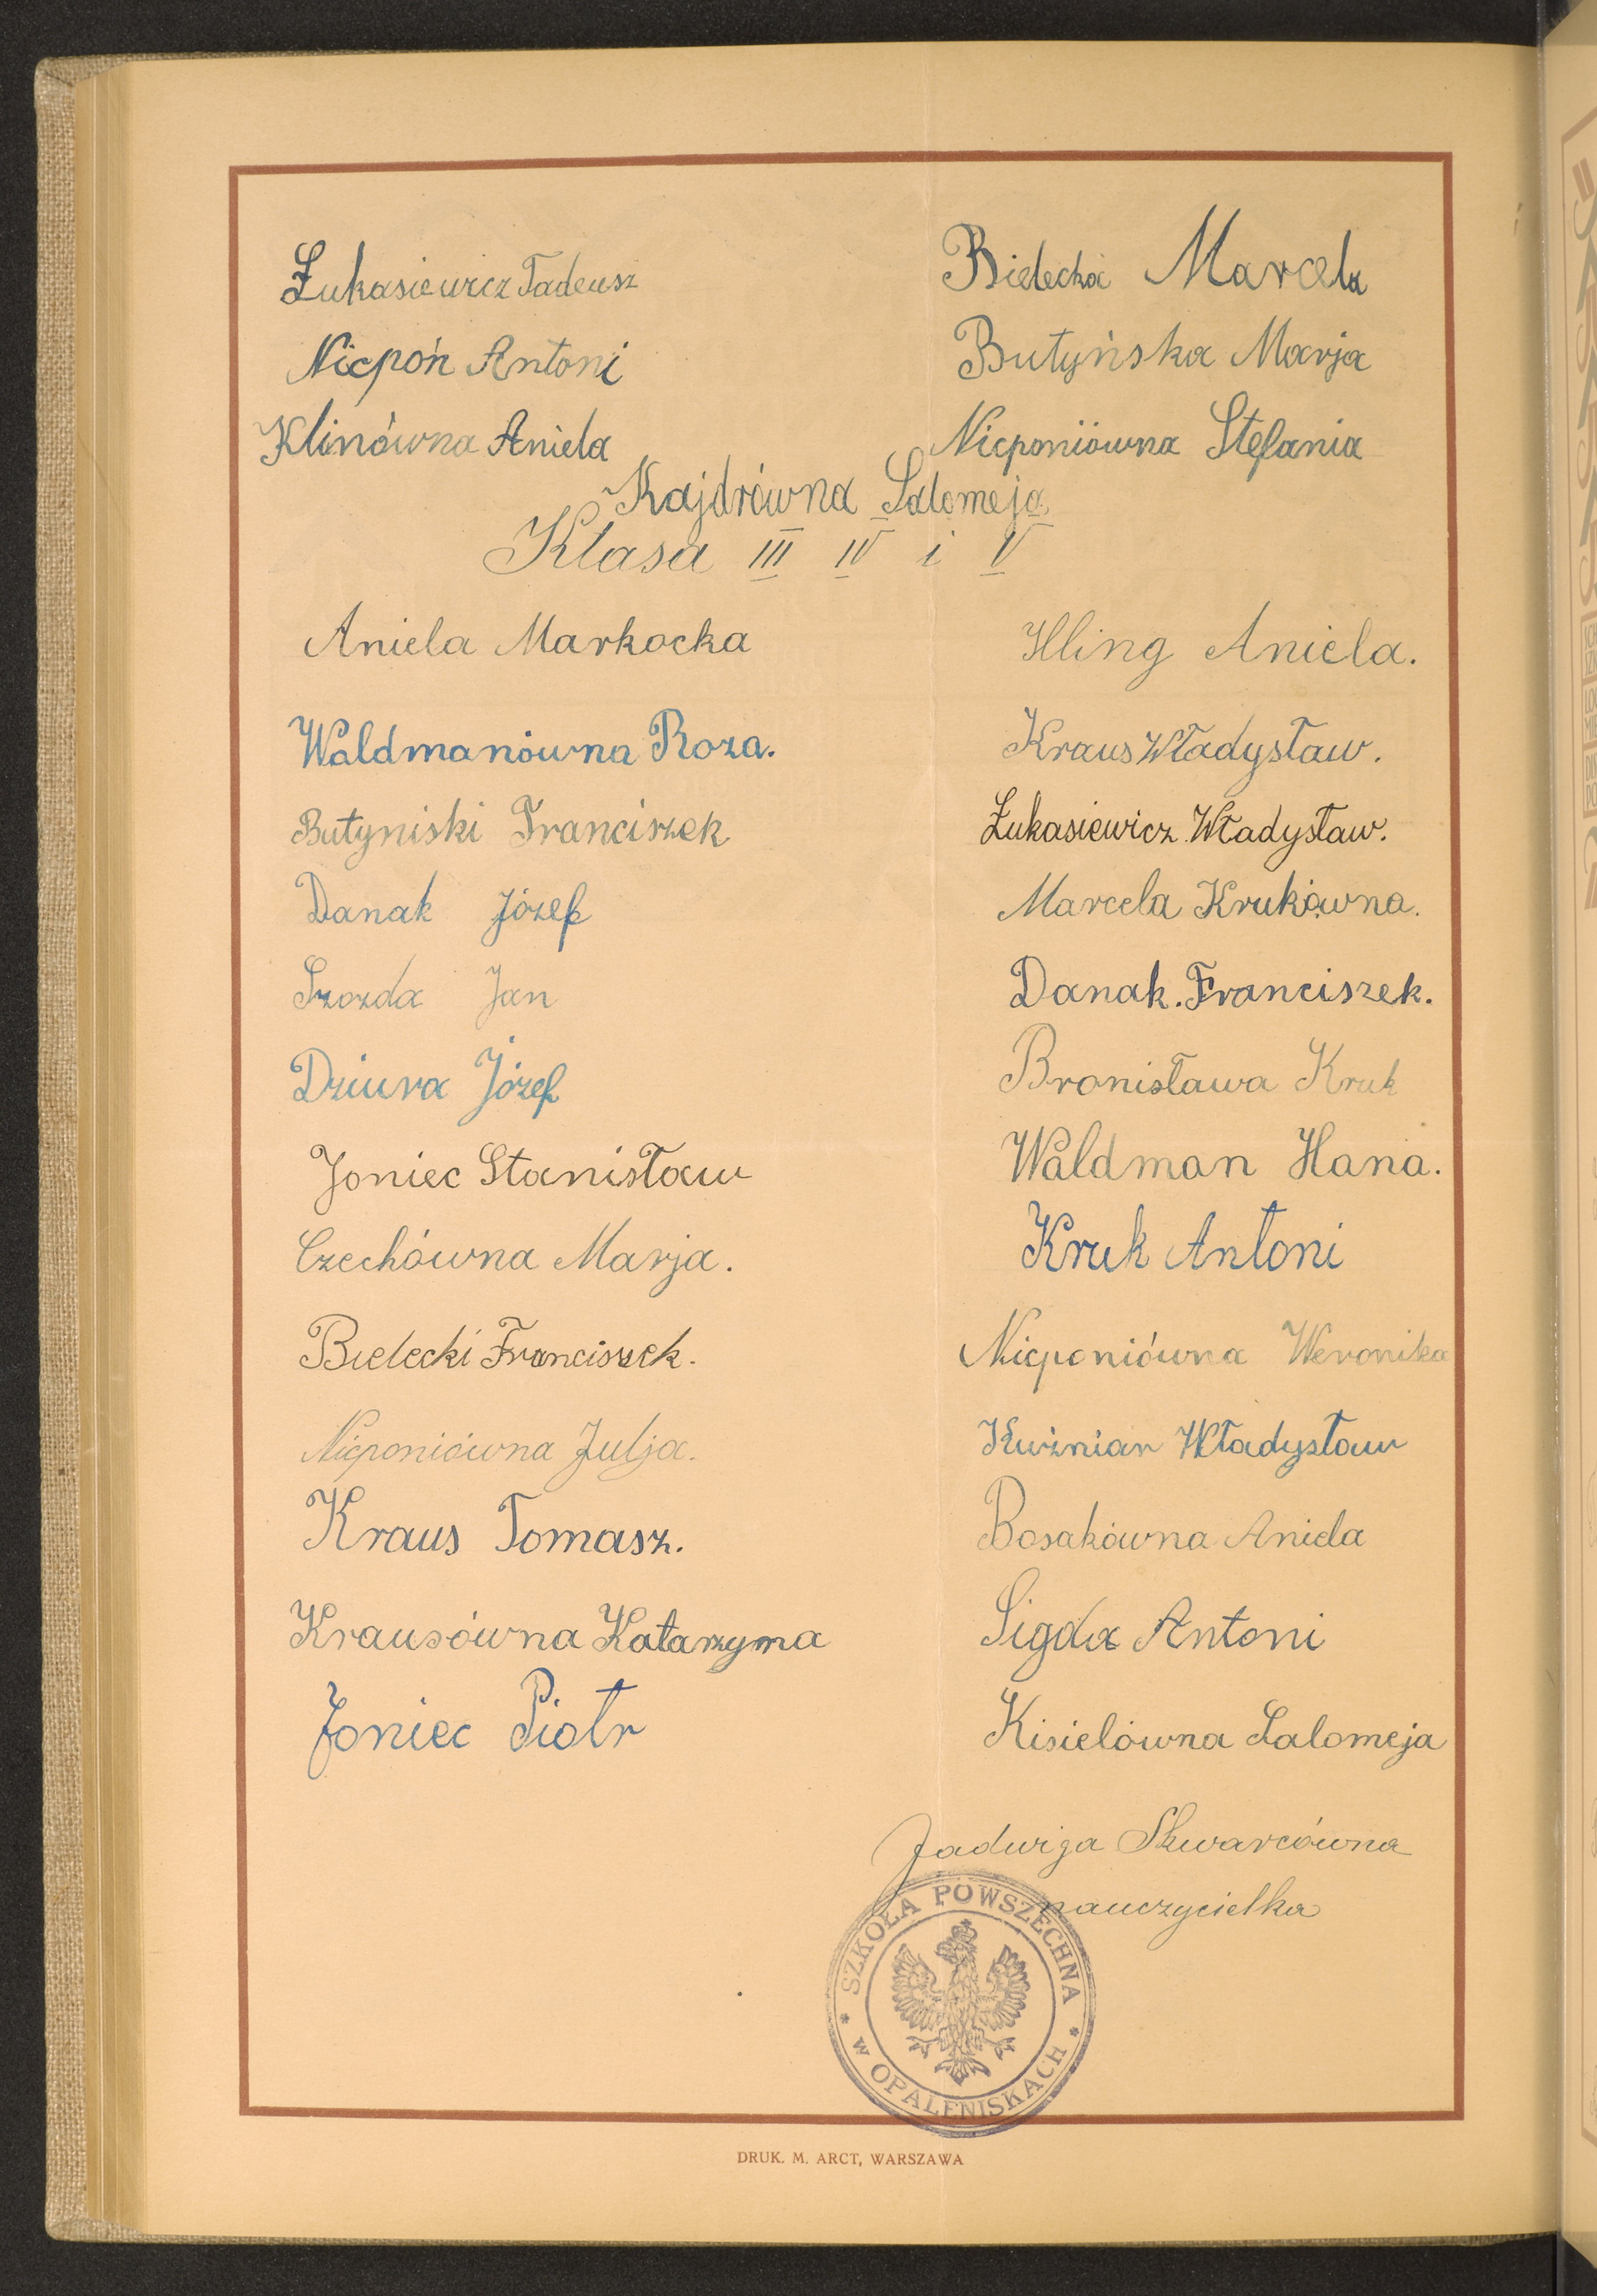 Łukasiewicz Tadeusz
Bielecka Marcela
Nicpoń Antoni
Butyńska Marja
Klinówna Aniela
Nicponiówna Stefania
Kajdrówna Salomeja
Klasa III IV i V
Aniela Markocka
Kling Aniela.
Waldmanówna Roza.
Kraus Władysław.
Butyniski Franciszek
Łukasiewicz Władysław.
Danak Józef
Marcela Krukówna.
Szozda Jan
Danak. Franciszek.
Dziura Józef
Bronisława Kruk
Joniec Stanisław
Waldman Hana.
Czechówna Marja.
Kruk Antoni
Bielecki Franciszek.
Nicponiówna Weronika
Nicponiówna Julja.
Kuźniar Władysław
Kraus Tomasz.
Bosakówna Aniela
Krausówna Katarzyna
Sigda Antoni
Joniec Piotr
Kisielówna Salomeja
Jadwiga Skwarcówna
nauczycielka
SZKOŁA POWSZECHNA
* w OPALENISKACH *
DRUK. M. ARCT, WARSZAWA